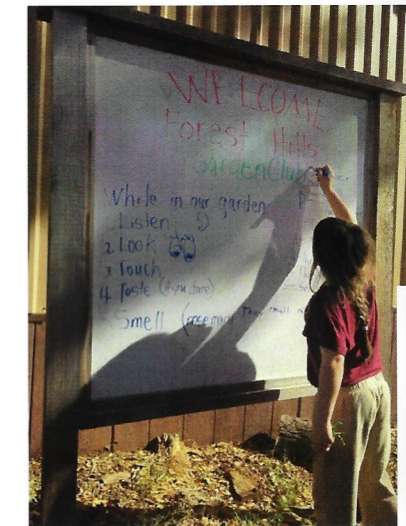 WELCOME
Forest Hills
Garden Club
While in our garden
1. Listen
2. Look
3. Touch
4. Taste (if you dare)
Smell (rosemary